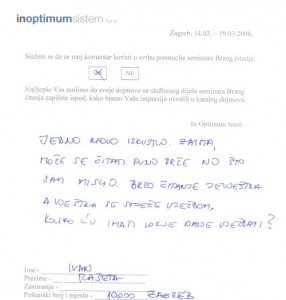 inoptimumsistem d.o.o.
Zagreb, 14.03. – 19.03.2008.
Slažete se da se moj komentar koristi u svrhu promocije seminara Brzog čitanja.
DA NE
Najljepše Vas molimo da svoje dojmove sa službenog dijela seminara Brzog
čitanja zapišete ispod, kako bismo Vaše impresije uvrstili u katalog dojmova.
In Optimum team
JEDNO NOVO ISKUSTVO. ZAISTA,
MOŽE SE ČITATI PUNO BRŽE NO ŠTO
SAM MISLIO. BRZO ČITANJE JE VJEŠTINA
A VJEŠTINA SE STJEČE VJEŽBOM.
KOLIKO ĆU IMATI VOLJE DALJE VJEŽBATI?
Ime - IVAN
Prezime -
Zanimanje -
Poštanski broj i mjesto - 10000 ZAGREB